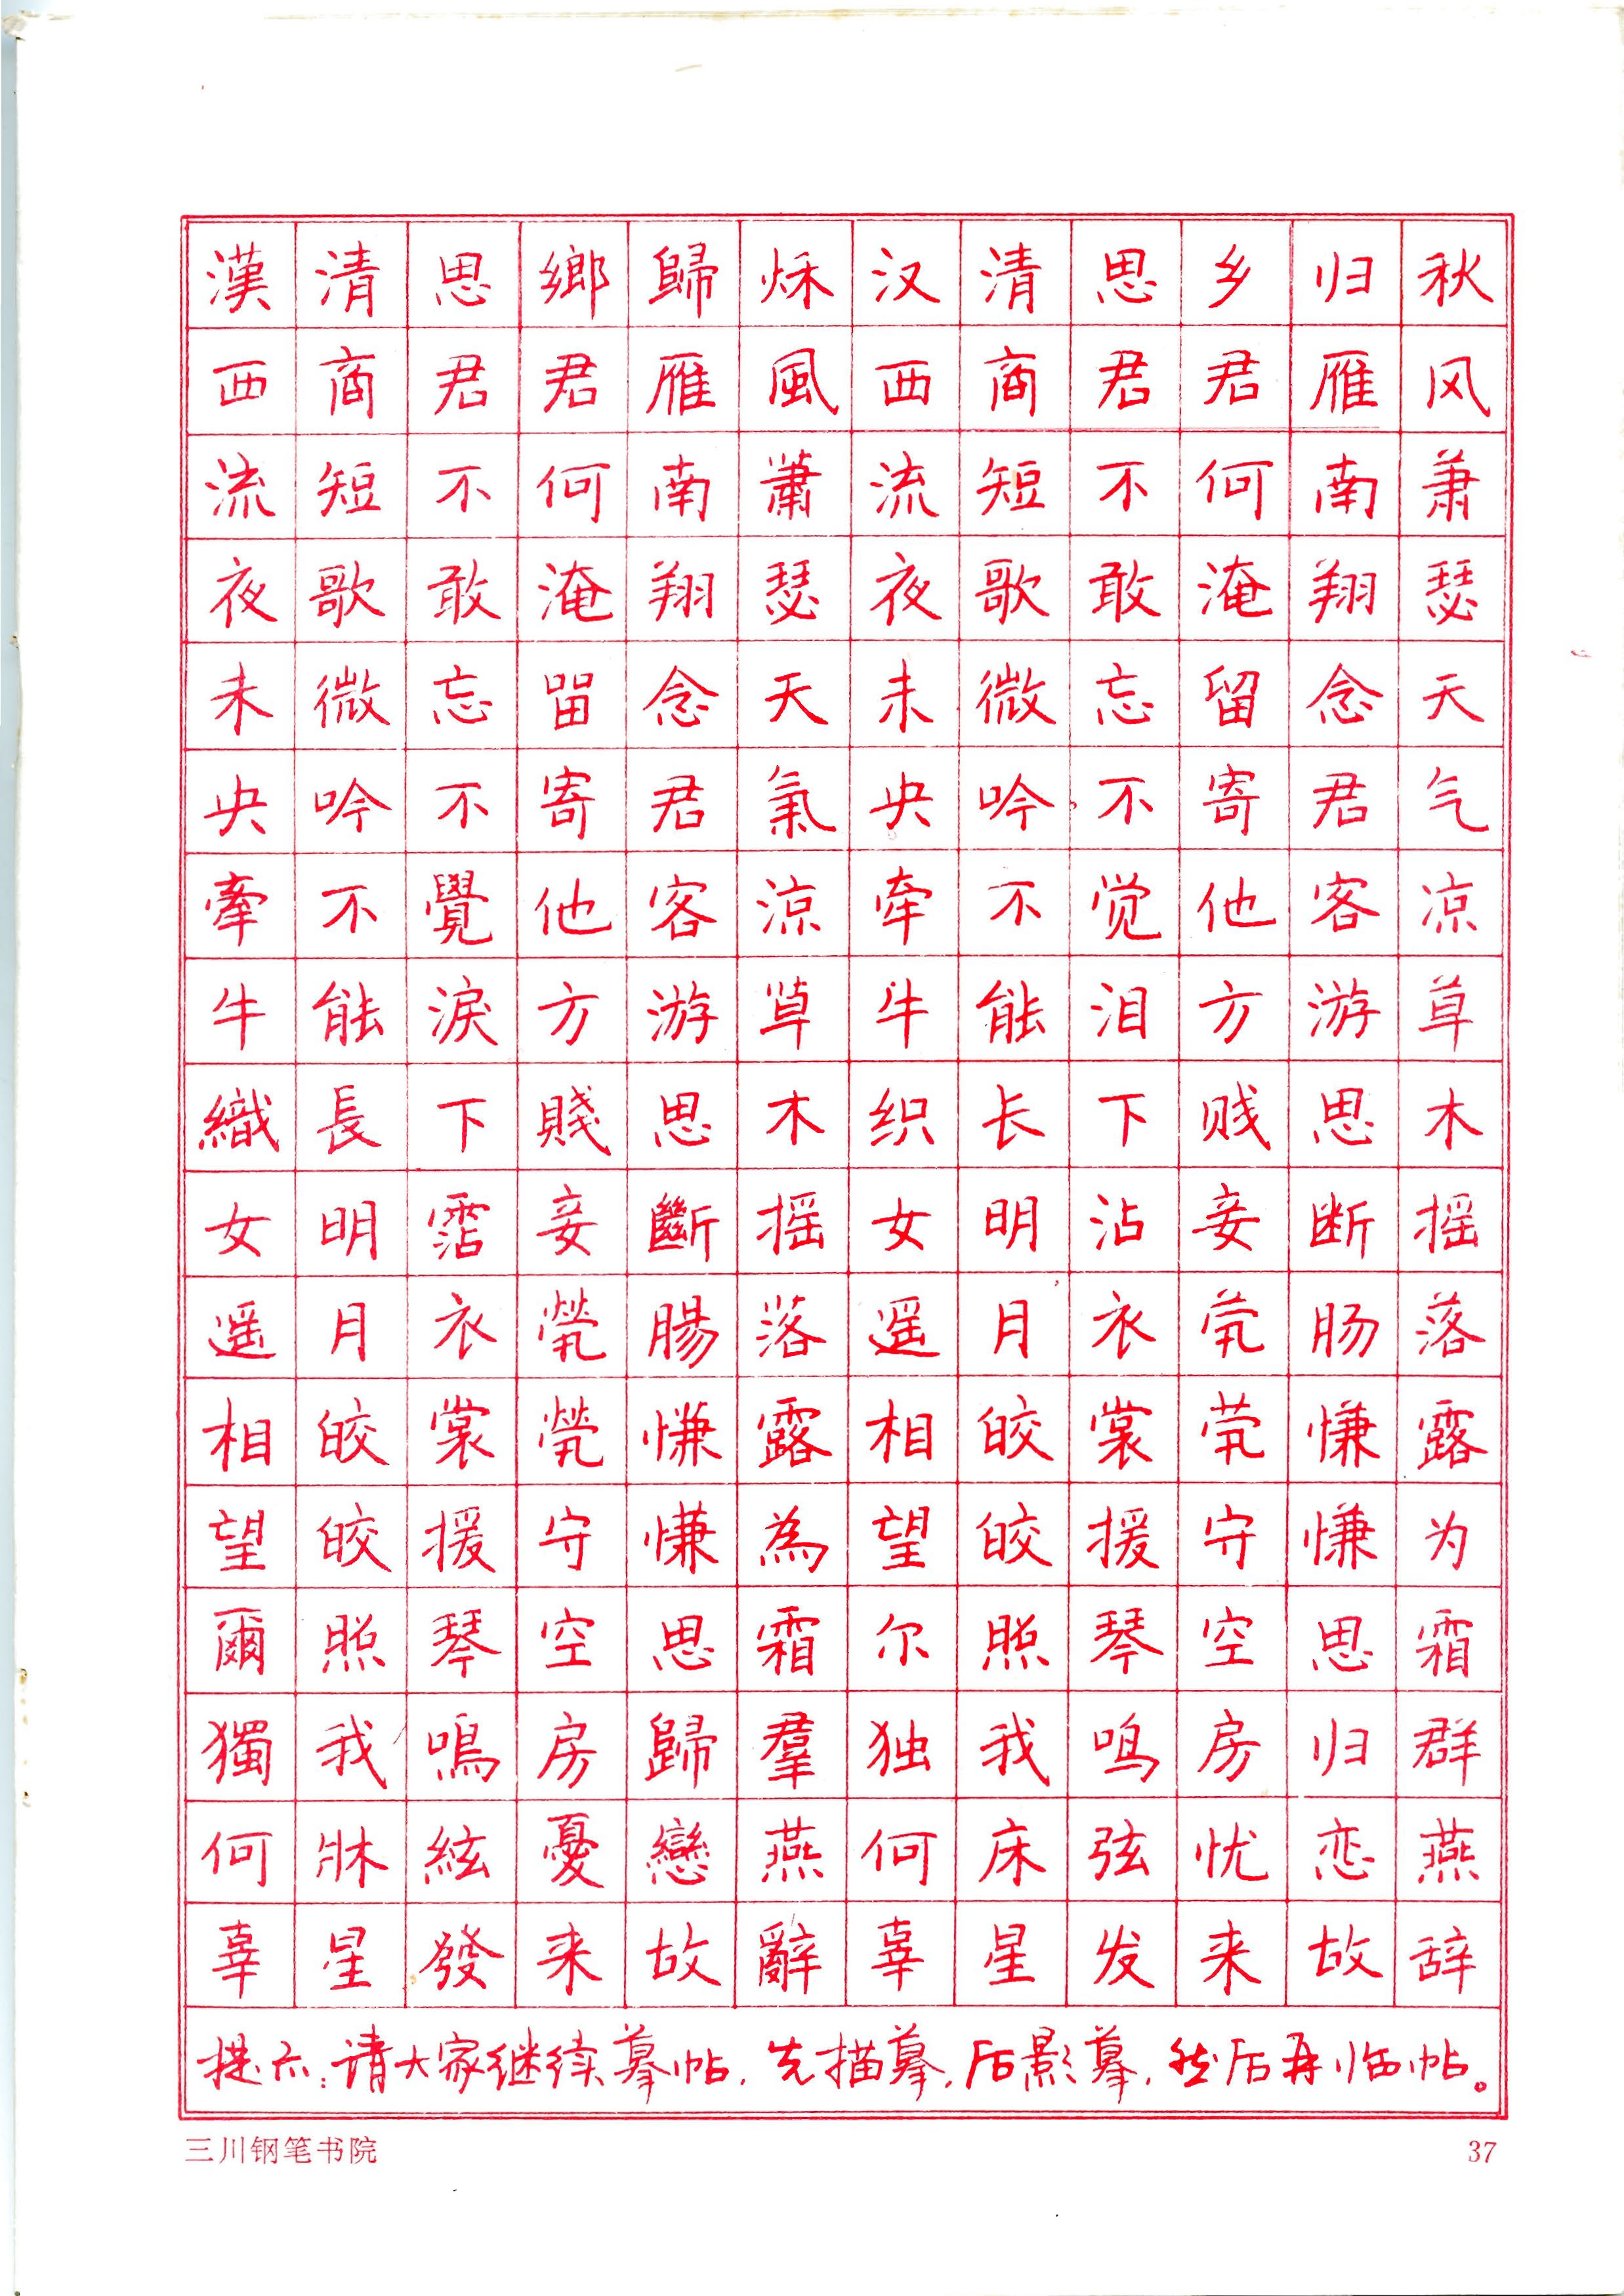 秋风萧瑟天气凉草木摇落露为霜群燕辞
归雁南翔念君客游思断肠慊慊思归恋故
乡君何淹留寄他方贱妾茕茕守空房忧来
思君不敢忘不觉泪下沾衣裳援琴鸣弦发
清商短歌微吟不能长明月皎皎照我床星
汉西流夜未央牵牛织女遥相望尔独何辜
秌風蕭瑟天氣涼草木摇落露為霜羣燕辭
歸雁南翔念君客游思斷腸慊慊思歸戀故
鄉君何淹畱寄他方賤妾煢煢守空房憂来
思君不敢忘不覺淚下霑衣裳援琴鳴絃發
清商短歌微吟不能長明月皎皎照我牀星
漢西流夜未央牽牛織女遥相望爾獨何辜
提示:请大家继续摹帖,先描摹,后影摹,然后再临帖。
三川钢笔书院
37